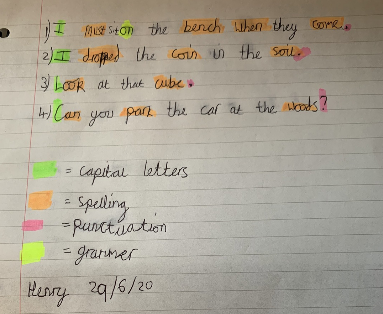 1) I must sit on the bench when they come.
2) I dropped the coin in the soil.
3) Look at that cube.
4) Can you park the car at the woods?
= capital letters
= spelling
= punctuation
= grammer
Henry 29/6/20